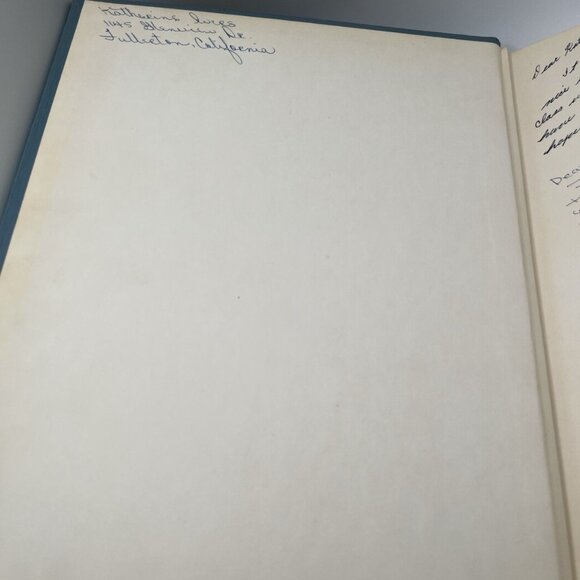 Katherine Ives
1145 Glenview Dr.
Fullerton, California
Dear
It
nice
class
have
hope
Dea